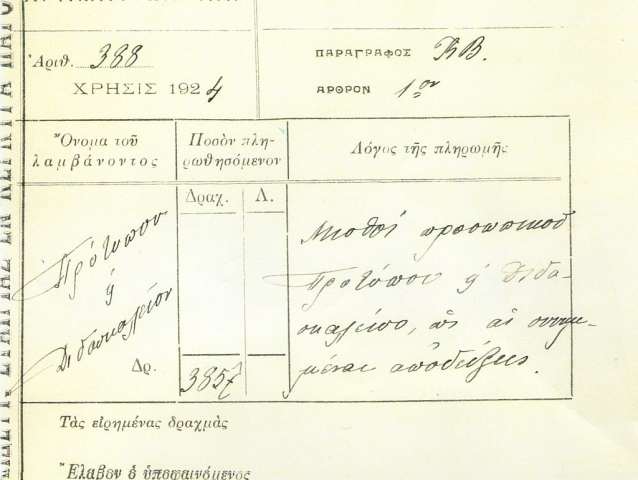 Ἀριθ. 388
ΧΡΗΣΙΣ 1924
ΠΑΡΑΓΡΑΦΟΣ ΚΒ.
ΑΡΘΡΟΝ 1ον
Ὄνομα τοῦ
λαμβάνοντος
Ποσὸν πλη-
ρωθησόμενον
Λόγος τῆς πληρωμῆς
Δραχ. Λ.
Πρότυπον
ἡ
Διδασκαλεῖον
Δρ. 3857
Μισθοὶ προσωπικοῦ
Προτύπου ἡ Διδα-
σκαλείου, ὡς αἱ συνημ-
μέναι ἀποδείξεις.
Τὰς εἰρημένας δραχμὰς
Ἔλαβον ὁ ὑποφαινόμενος